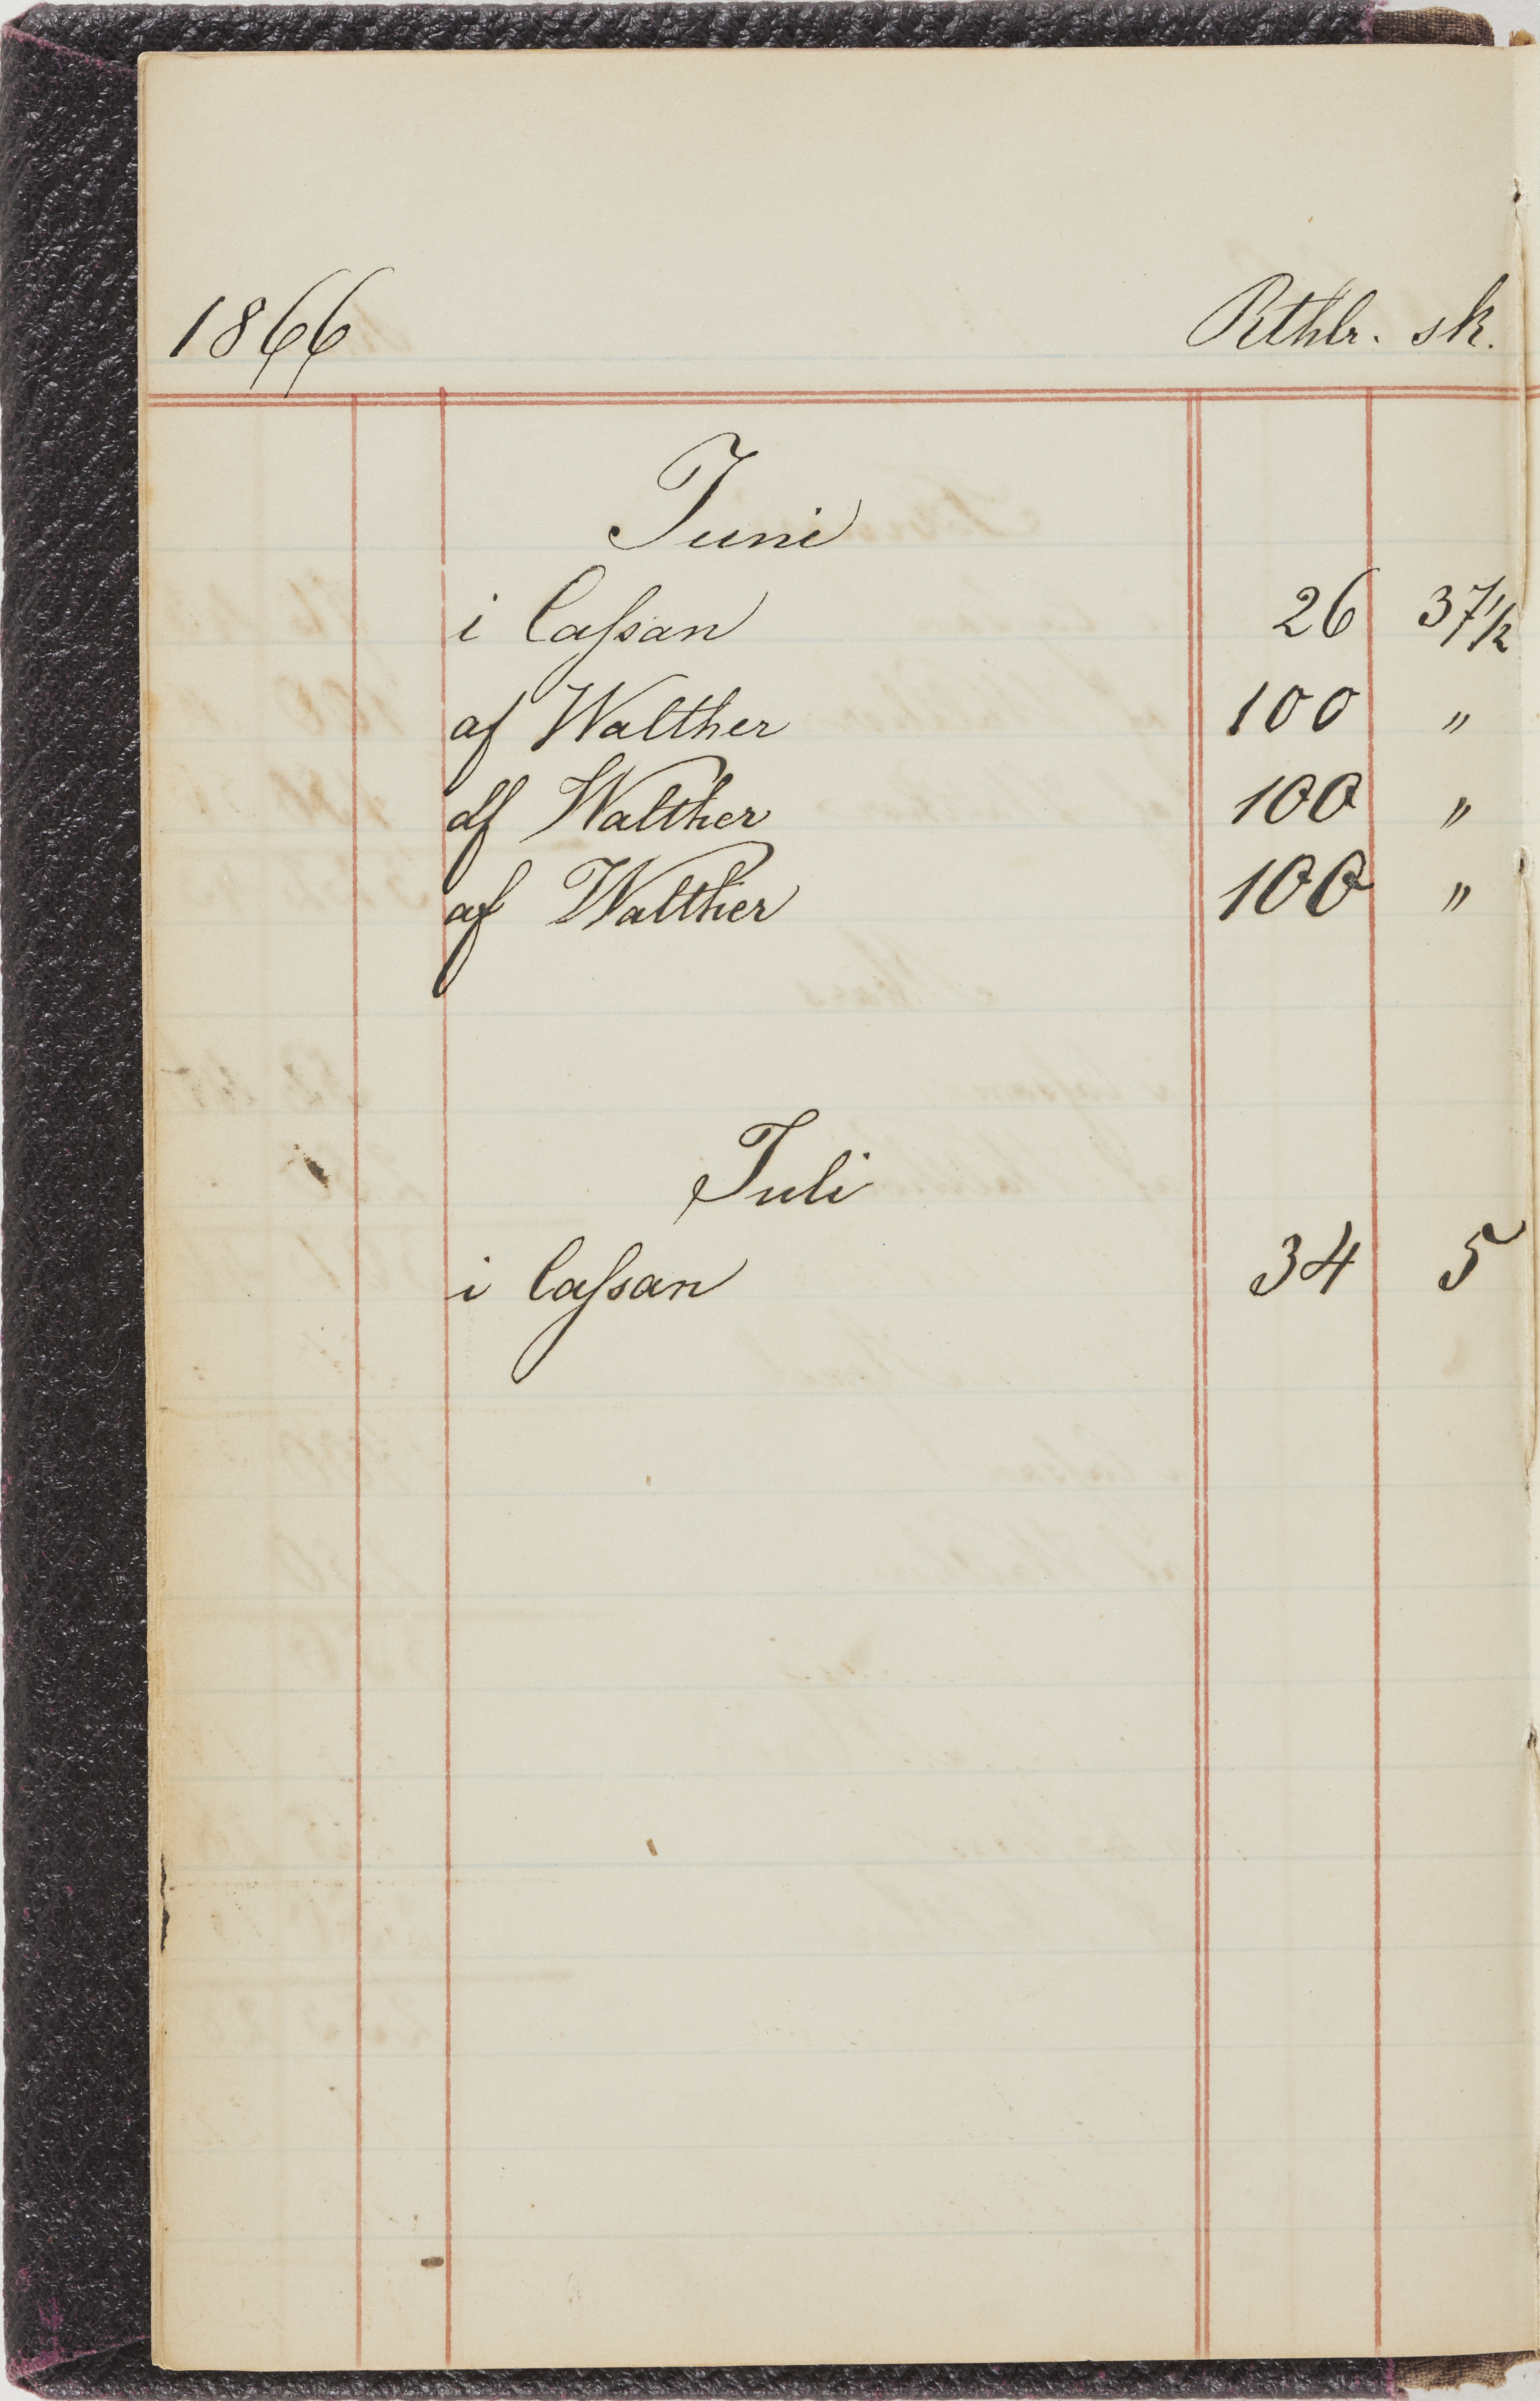 1866 Rthlr. sk.
Juni
i Caſsan 26 37 1/2
af Walther 100 "
af Walther 100 "
af Walther 100 "
Juli
i Caſsan 34 5